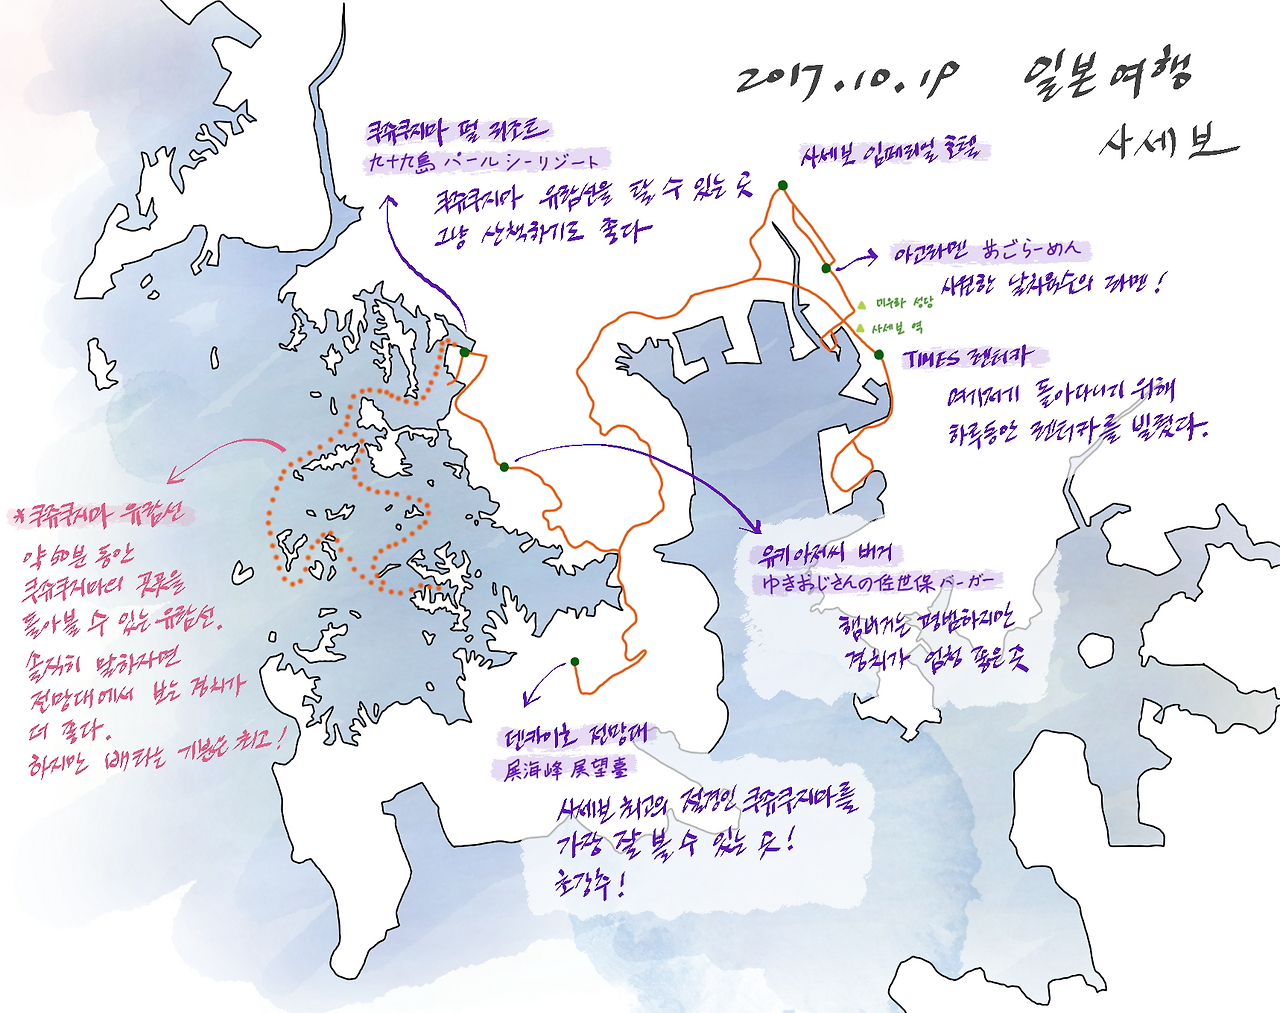 2017.10.19 일본여행
사세보
쿠쥬쿠지마 펄 리조트
九十九島 パールシーリゾート
쿠쥬쿠지마 유람선을 탈 수 있는 곳
그냥 산책하기도 좋다
사세보 임페리얼 호텔
아고라멘 あごらーめん
시원한 날치육수의 라멘!
미우라 성당
사세보 역
TIMES 렌터카
여기저기 돌아다니기 위해
하루동안 렌터카를 빌렸다.
*쿠쥬쿠지마 유람선
약 50분 동안
쿠쥬쿠지마의 곳곳을
돌아볼 수 있는 유람선.
솔직히 말하자면
전망대에서 보는 경치가
더 좋다.
하지만 배타는 기분은 최고!
유키 아저씨 버거
ゆきおじさんの佐世保バーガー
햄버거는 평범하지만
경치가 엄청 좋은 곳
덴카이호 전망대
展海峰 展望臺
사세보 최고의 절경인 쿠쥬쿠지마를
가장 잘 볼 수 있는 곳!
초강추!